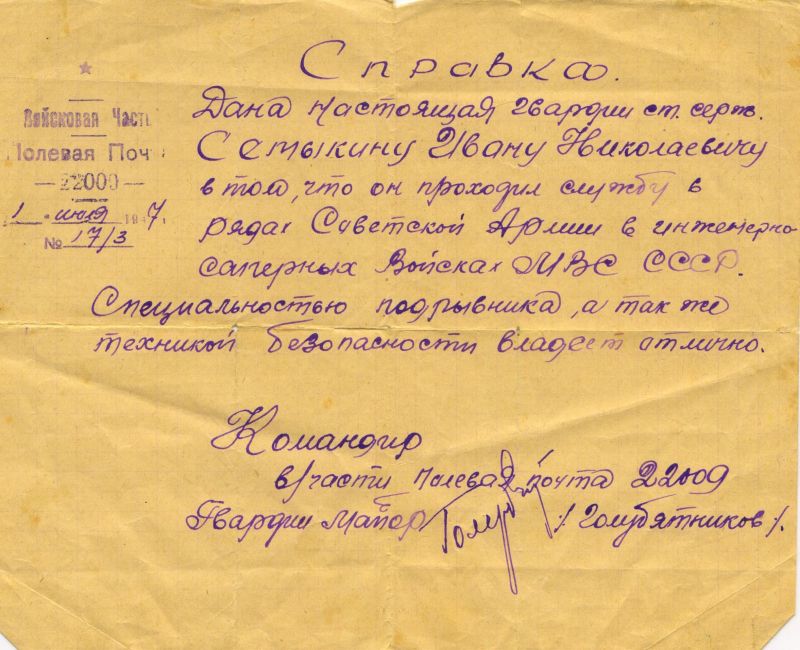 Справка.
Войсковая Часть
Полевая Почт
— 22000 —
1 " июля 1947.
№ 17/3
Дана настоящая гвардии ст. серж.
Сетыкину Ивану Николаевичу
в том, что он проходил службу в
рядах Советской Армии в инженерно
саперных Войсках МВС СССР.
Специальностью подрывника, а так же
техникой безопасности владеет отлично.
Командир
в/части полевая почта 22009
Гвардии майор /Голубятников/.